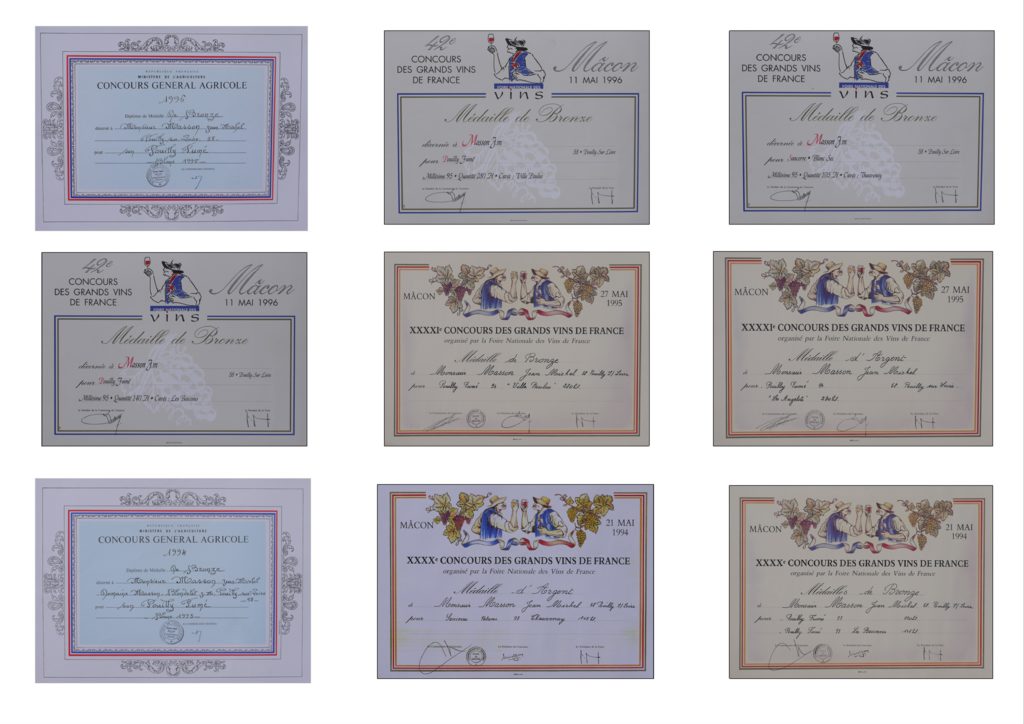 RÉPUBLIQUE FRANÇAISE
MINISTÈRE DE L'AGRICULTURE
CONCOURS GENERAL AGRICOLE
1996
Diplôme de Médaille De Bronze
décerné à Monsieur Masson Jean Michel
Pouilly sur Loire 58
pour son Pouilly Fumé
Blanc 1995
42e
CONCOURS
DES GRANDS VINS
DE FRANCE
Mâcon
11 MAI 1996
FOIRE NATIONALE DES
vins
Médaille de Bronze
décernée à Masson J.m
58 • Pouilly Sur Loire
pour Pouilly Fumé
Millésime 95 • Quantité 280 Hl • Cuvée : Villa Paulus
42e
CONCOURS
DES GRANDS VINS
DE FRANCE
Mâcon
11 MAI 1996
FOIRE NATIONALE DES
vins
Médaille de Bronze
décernée à Masson J.m
58 • Pouilly Sur Loire
pour Sancerre • Blanc Sec
Millésime 95 • Quantité 105 Hl • Cuvée :
42e
CONCOURS
DES GRANDS VINS
DE FRANCE
Mâcon
11 MAI 1996
FOIRE NATIONALE DES
vins
Médaille de Bronze
décernée à Masson J.m
58 • Pouilly Sur Loire
pour Pouilly Fumé
Millésime 95 • Quantité 140 Hl • Cuvée : Les Bascoins
MÂCON
27 MAI
1995
XXXXIe CONCOURS DES GRANDS VINS DE FRANCE
organisé par la Foire Nationale des Vins de France
Médaille de Bronze
à Monsieur Masson Jean Michel 58 Pouilly S/Loire
pour Pouilly Fumé 94 "Villa Paulus"
MÂCON
27 MAI
1995
XXXXIe CONCOURS DES GRANDS VINS DE FRANCE
organisé par la Foire Nationale des Vins de France
Médaille d'Argent
à Monsieur Masson Jean Michel
pour Pouilly Fumé 94 58 Pouilly sur Loire
RÉPUBLIQUE FRANÇAISE
MINISTÈRE DE L'AGRICULTURE
CONCOURS GENERAL AGRICOLE
1994
Diplôme de Médaille De Bronze
décerné à Monsieur Masson Jean Michel
Domaine Masson Blondelet Pouilly sur Loire
58
pour son Pouilly Fumé
Blanc 1993
MÂCON
21 MAI
1994
XXXXe CONCOURS DES GRANDS VINS DE FRANCE
organisé par la Foire Nationale des Vins de France
Médaille d'Argent
à Monsieur Masson Jean Michel 58 Pouilly S/Loire
pour Sancerre Blanc 93
MÂCON
21 MAI
1994
XXXXe CONCOURS DES GRANDS VINS DE FRANCE
organisé par la Foire Nationale des Vins de France
Médailles de Bronze
à Monsieur Masson Jean Michel 58 Pouilly S/Loire
pour Pouilly Fumé 93
Pouilly Fumé 93 Les Bascoins